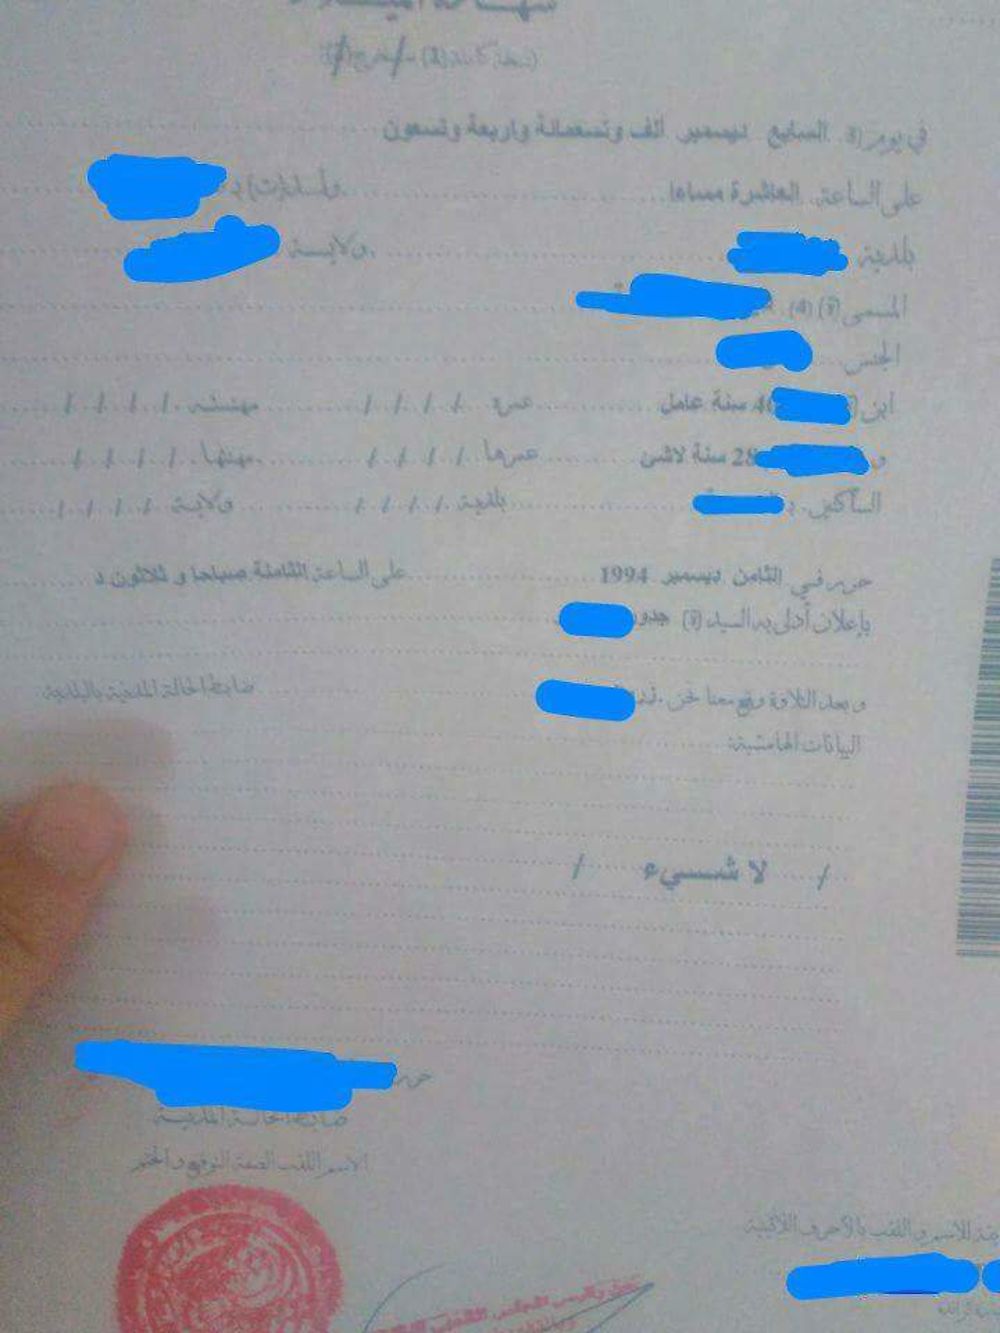 شهادة الميلاد
في يوم (3) السابع ديسمبر ألف وتسعمائة واربعة وتسعون
على الساعة العاشرة مساءا ولد(ت) بـ
بلدية ولاية
المسمى (ة) (4)
الجنس
ابن 46 سنة عامل عمره / / / / مهنته / / / /
و 28 سنة لاشئ عمرها / / / / مهنتها / / / /
الساكنين بـ بلدية / / / / ولاية / / / /
حرر في الثامن ديسمبر 1994 على الساعة الثامنة صباحا و ثلاثون د
بإعلان أدلى به السيد (ة) جدور
و بعد التلاوة وقع معنا نحن ضابط الحالة المدنية بالبلدية
البيانات الهامشية:
/ لا شيء /
حرر
ضابط الحالة المدنية
الاسم اللقب الصفة التوقيع و الختم
للاسم و اللقب بالأحرف اللاتينية